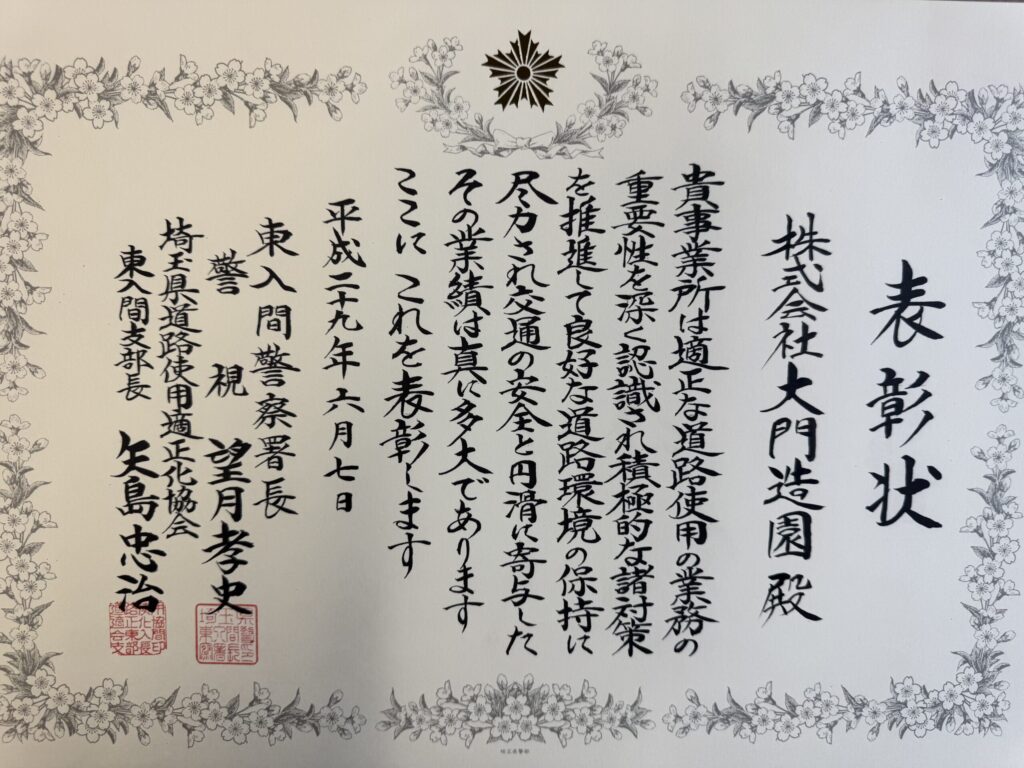 表彰状
株式会社大門造園殿
貴事業所は適正な道路使用の業務の
重要性を深く認識され積極的な諸対策
を推進して良好な道路環境の保持に
尽力され交通の安全と円滑に寄与した
その業績は真に多大であります
ここに これを表彰します
平成二十九年六月七日
東入間警察署長
警視 望月孝史
埼玉県道路使用適正化協会
東入間支部長 矢島忠治
埼玉県警察